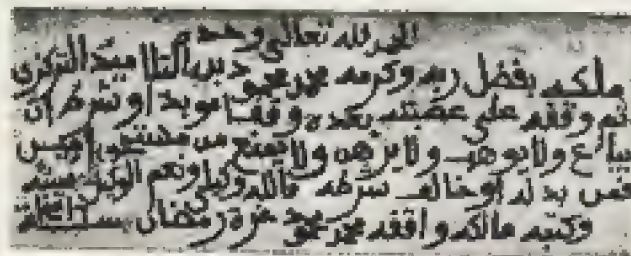 الحمد لله تعالى وحده
ملكه بفضل ربه وكرمه محمد محمود بن التلاميد التركزي
ثم وقفه على عصبته بعده وقفا مؤبدا وشرطه أن
لا يباع ولا يوهب ولا يرهن ولا يمنع من مستحق
فمن بدله أو خالف شرطه فالله وكيله ونعم الوكيل
وكتبه مالكه واقفه محمد محمود غرة رمضان سنة